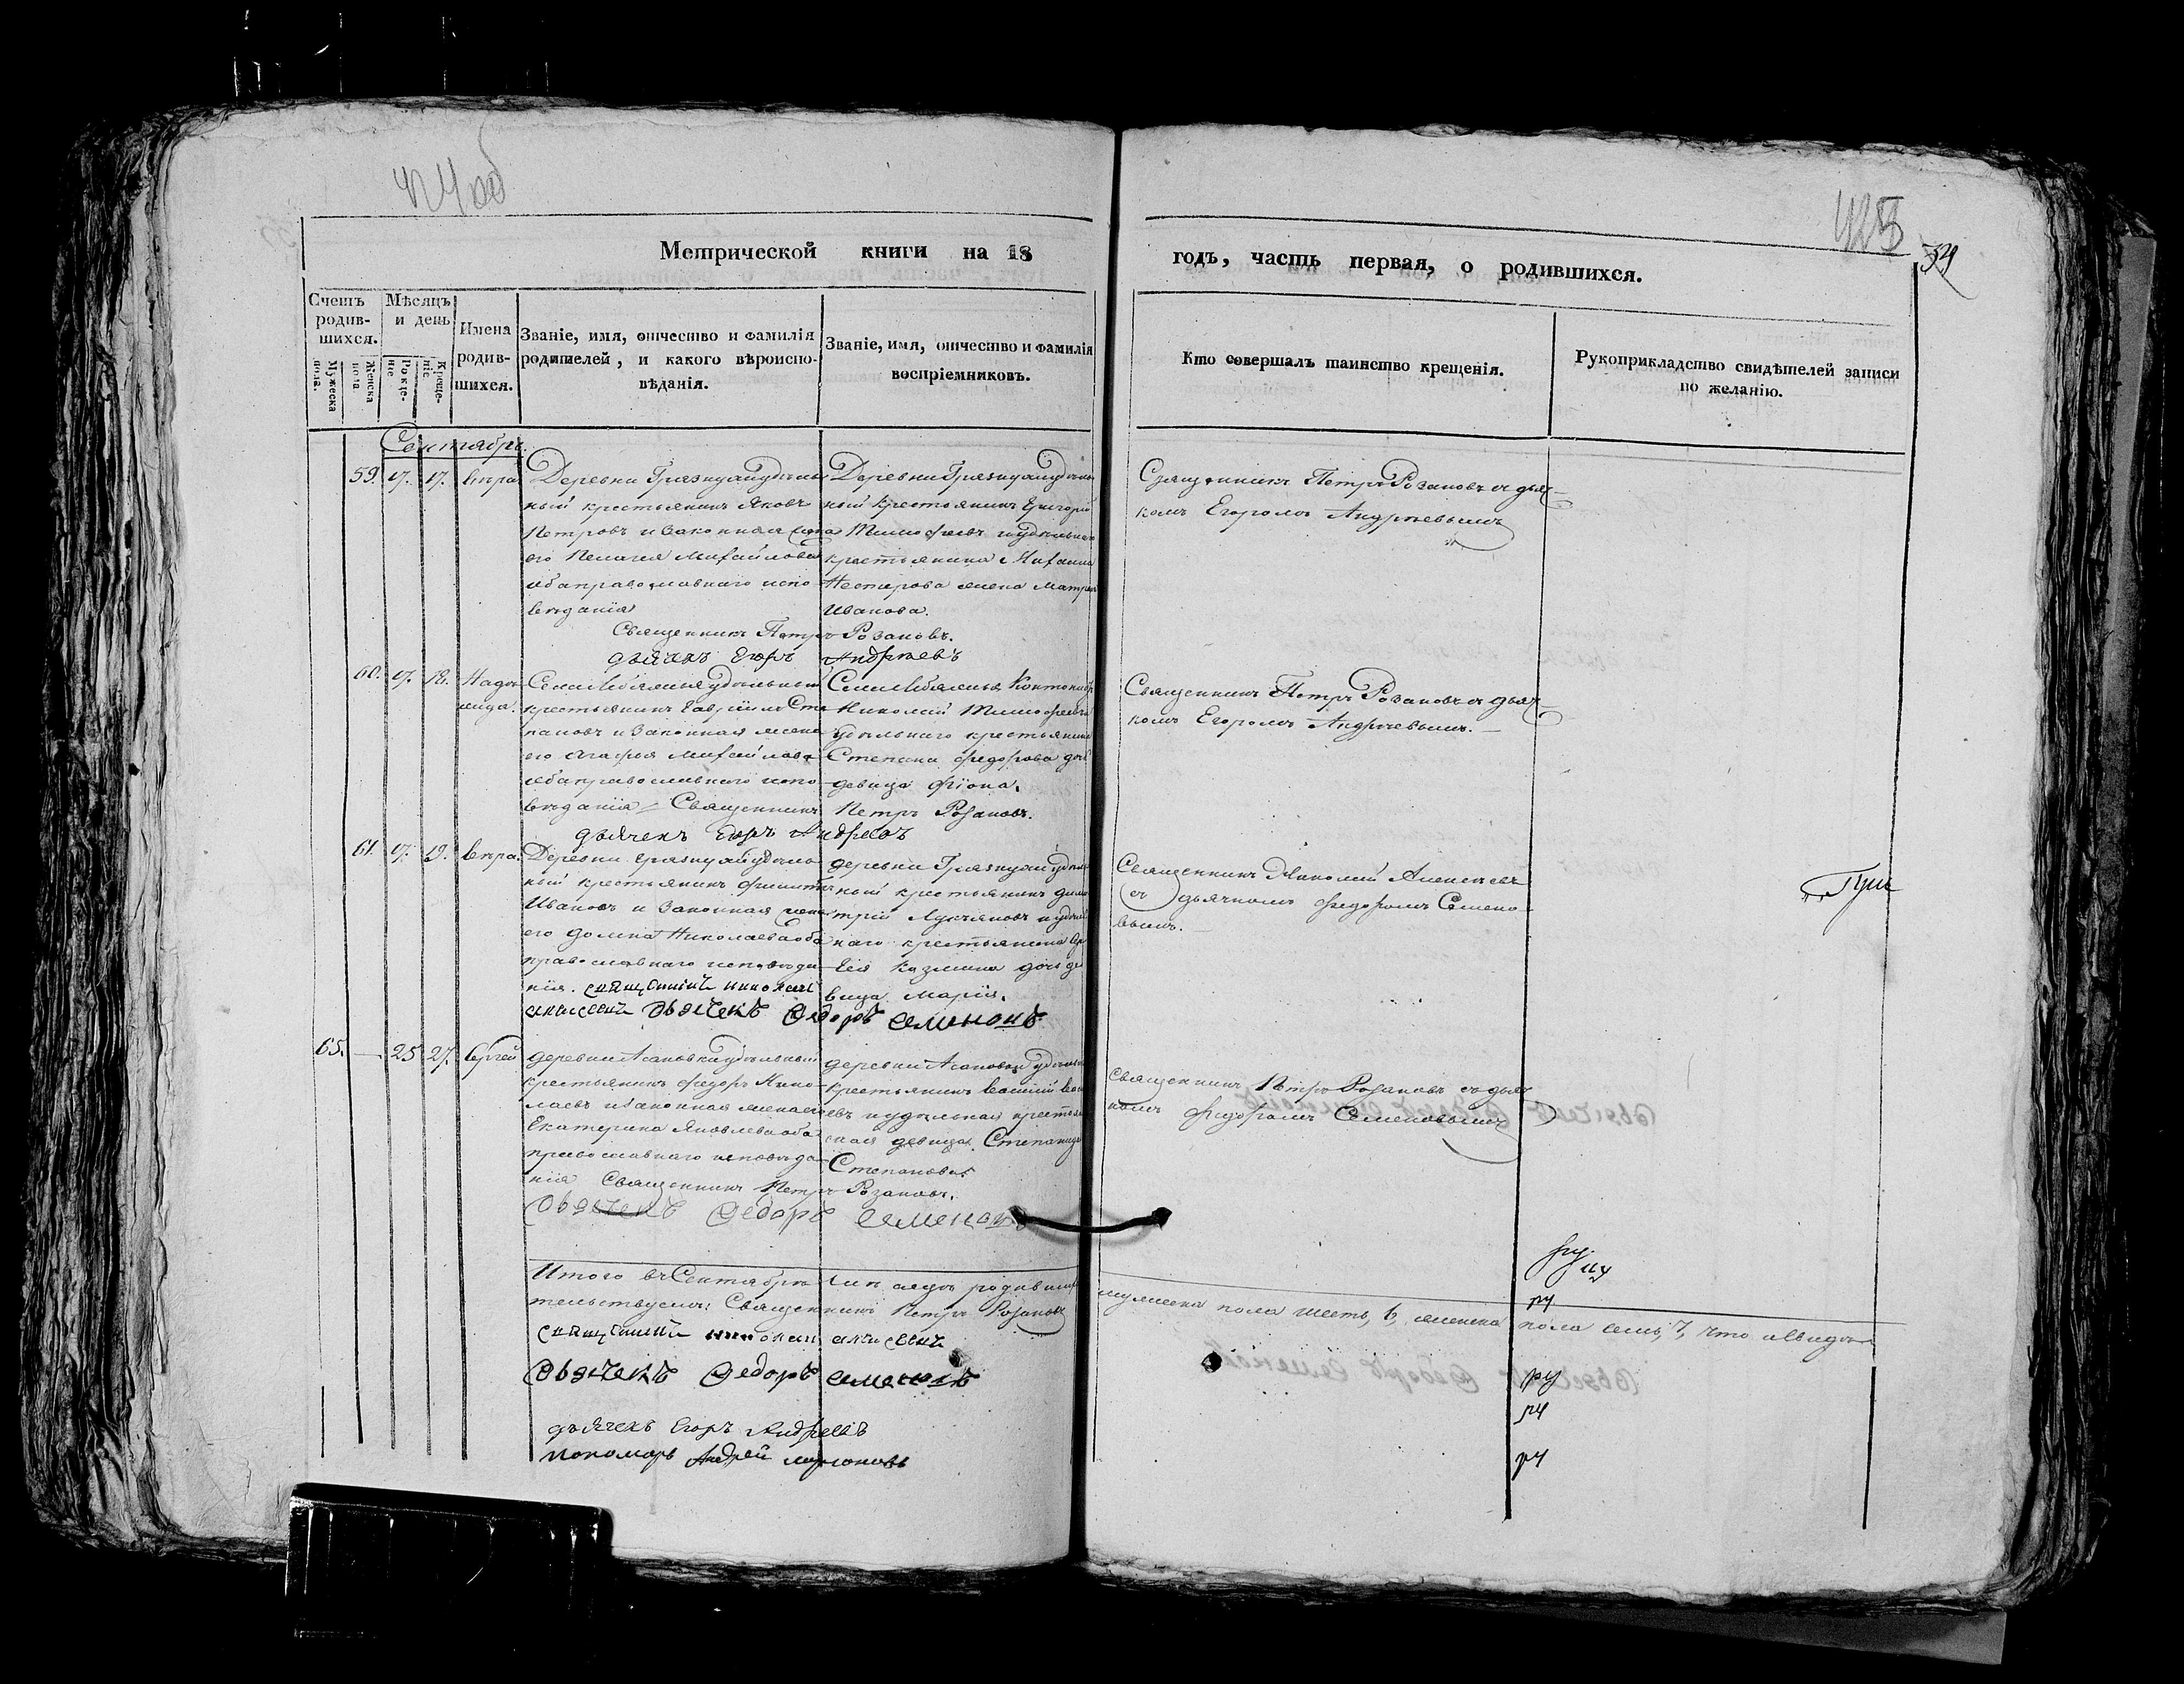 425
54
Метрической книги на 18
годъ, часть первая, о родившихся.
Счетъ родив-шихся.
Мужеска пола.
Женска пола
Мѣсяцъ и день
Рожде-ніе
Креще-ніе
Имена родив-шихся.
Званіе, имя, отчество и фамилія
родителей, и какого вѣроиспо-
вѣданія.
Званіе, имя, отчество и фамилія
воспріемниковъ.
Кто совершалъ таинство крещенія.
Рукоприкладство свидѣтелей записи
по желанію.
Сентябрь.
59. 17. 17. Вѣра
Деревни Грязнухи удѣль
ный крестьянинъ Яковъ
Петровъ и законная жена
его Пелагея Михайлова
оба православнаго испо
вѣданія
Деревни Грязнухи удѣль
ный крестьянинъ Григорій
Тимофеевъ и удѣльнаго
крестьянина Михаила
Нестерова жена Матрена
Иванова.
Священникъ Петръ Розановъ.
дьячекъ Егоръ Андреевъ
Священникъ Петръ Розановъ съ дьяч
комъ Егоромъ Андреевымъ
60. 17. 18. Надѣ
жда.
Села удѣльный
крестьянинъ Гаврiилъ Сте
пановъ и законная жена
его Агафья Михайлова
оба православнаго испо
вѣданія Священникъ
Села
Николай Тимофеевъ
удѣльнаго крестьянина
Степана Федорова дочь
девица Фiона.
Петръ Розановъ.
дьячекъ Егоръ Андреевъ
Священникъ Петръ Розановъ съ дьяч
комъ Егоромъ Андреевымъ.
61. 17. 19. Вѣра.
Деревни Грязнухи удѣль
ный крестьянинъ
Ивановъ и законная жена
его Домна Николаева оба
православнаго исповѣда
нія. священникъ николай
алексеевъ дьячекъ Федоръ Семеновъ
деревни Грязнухи удѣль
ный крестьянинъ Дими
трій Лукьяновъ и удѣль
наго крестьянина
Козмина дочь де
вица Марія.
Священникъ Николай Алексѣевъ
съ дьячкомъ Федоромъ Семено
вымъ.
65. — 25 27. Сергей
деревни Асановки удѣльный
крестьянинъ Федоръ Нико
лаевъ и законная жена его
Екатерина Яковлева оба
православнаго исповѣда
нія Священникъ Петръ Розановъ.
деревни Асановки удѣльный
крестьянинъ Василій
и удѣльная крестьян
ская девица Степанида
Степанова.
дьячекъ Федоръ Семеновъ
Священникъ Петръ Розановъ съ дьяч
комъ Федоромъ Семеновымъ
Итого въ Сентябрѣ родивших
мужеска пола шесть, 6, женска пола семь, 7, что и свидѣ
тельствуемъ: Священникъ Петръ Розановъ
священникъ николай алексеевъ
дьячекъ Федоръ Семеновъ
дьячекъ Егоръ Андреевъ
пономарь Андрей